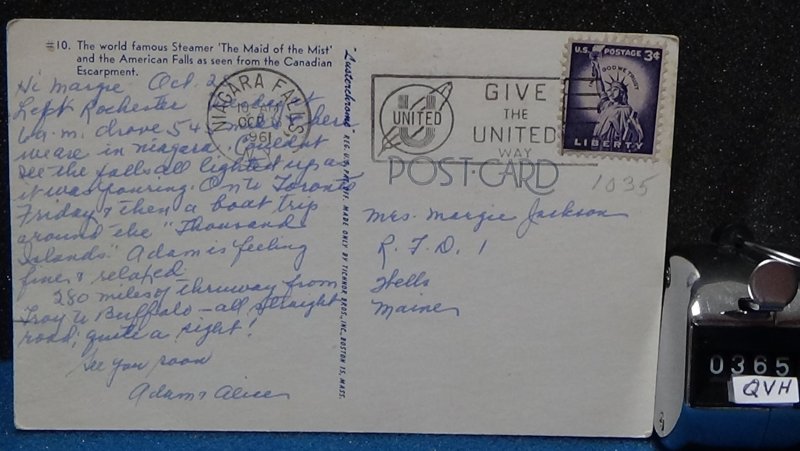 #10. The world famous Steamer 'The Maid of the Mist'
and the American Falls as seen from the Canadian
Escarpment.
Hi Margie Oct. 2
Left Rochester
6 a.m. drove 54 miles & here
we are in niagara. Couldnt
see the falls all lighted up as
it was pouring. On to Toronto
Friday & then a boat trip
around the "Thousand
Islands." Adam is feeling
fine & relaxed
280 miles of thruway from
Troy to Buffalo – all straight
road; quite a sight!
See you soon
Adam & Alice
"Lusterchrome" REG. U.S. PAT. OFF. MADE ONLY BY TICHNOR BROS., INC., BOSTON 15, MASS.
NIAGARA FALLS,
OCT
1961
N.Y.
UNITED
GIVE
THE
UNITED
WAY
U.S. POSTAGE 3¢
IN GOD WE TRUST
LIBERTY
POST-CARD
1035
Mrs. Margie Jackson
R. F. D. 1
Wells
Maine
0365
QVH